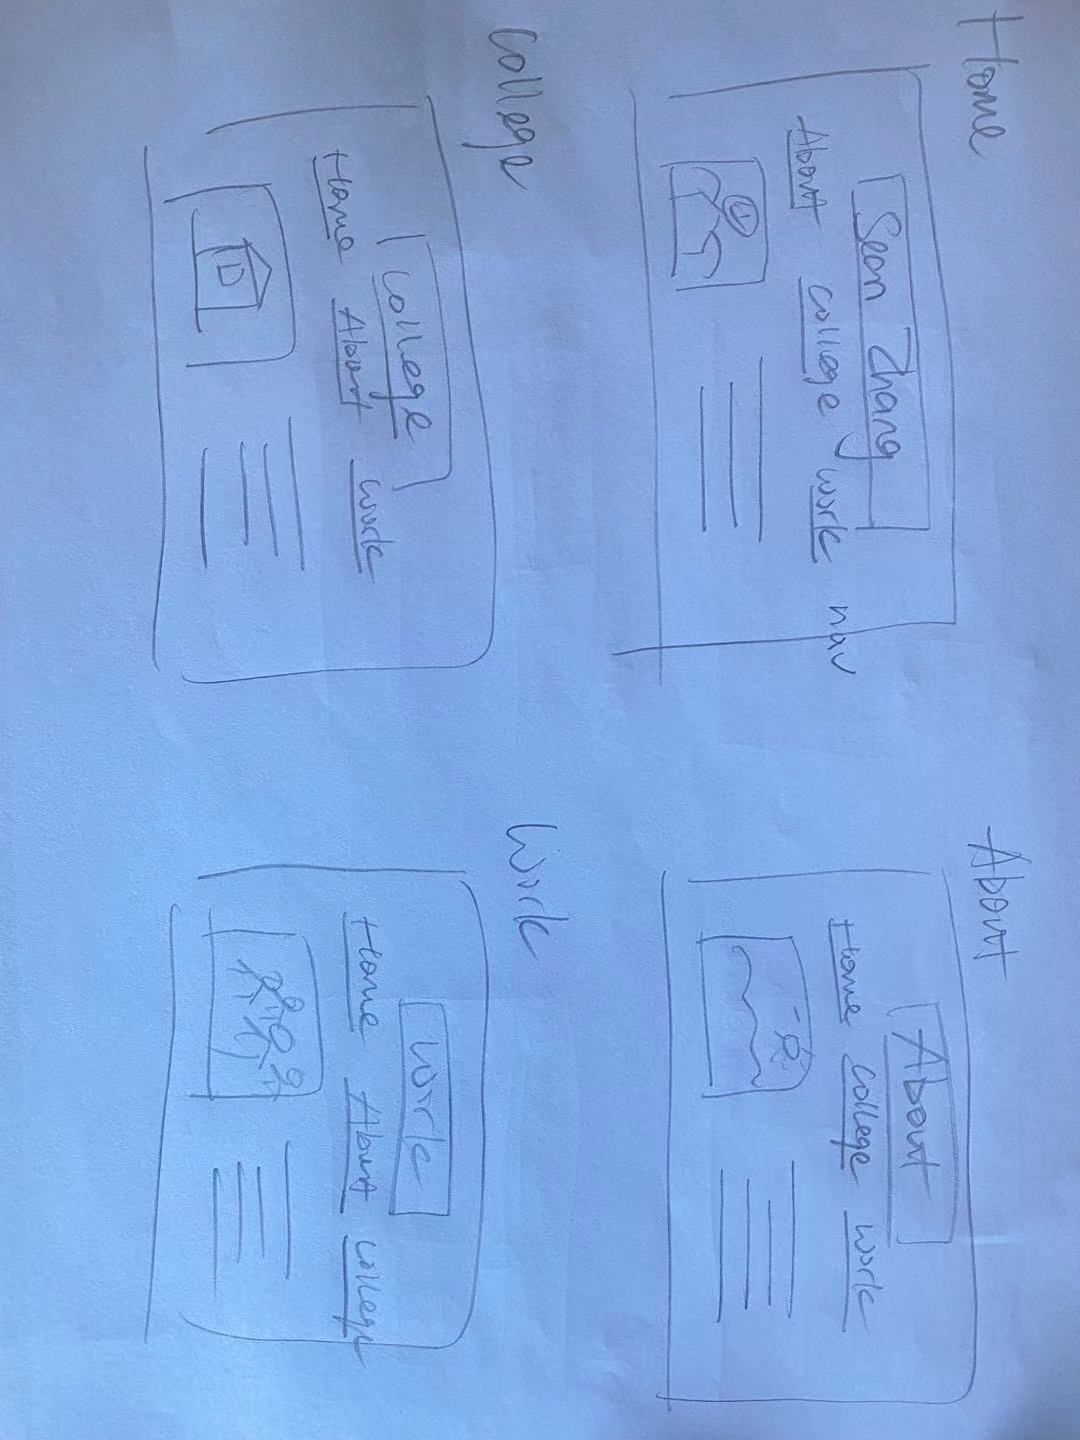 Home
Sean Zhang
About College Work nav
About
About
Home College Work
College
College
Home About Work
D
Work
Work
Home About College